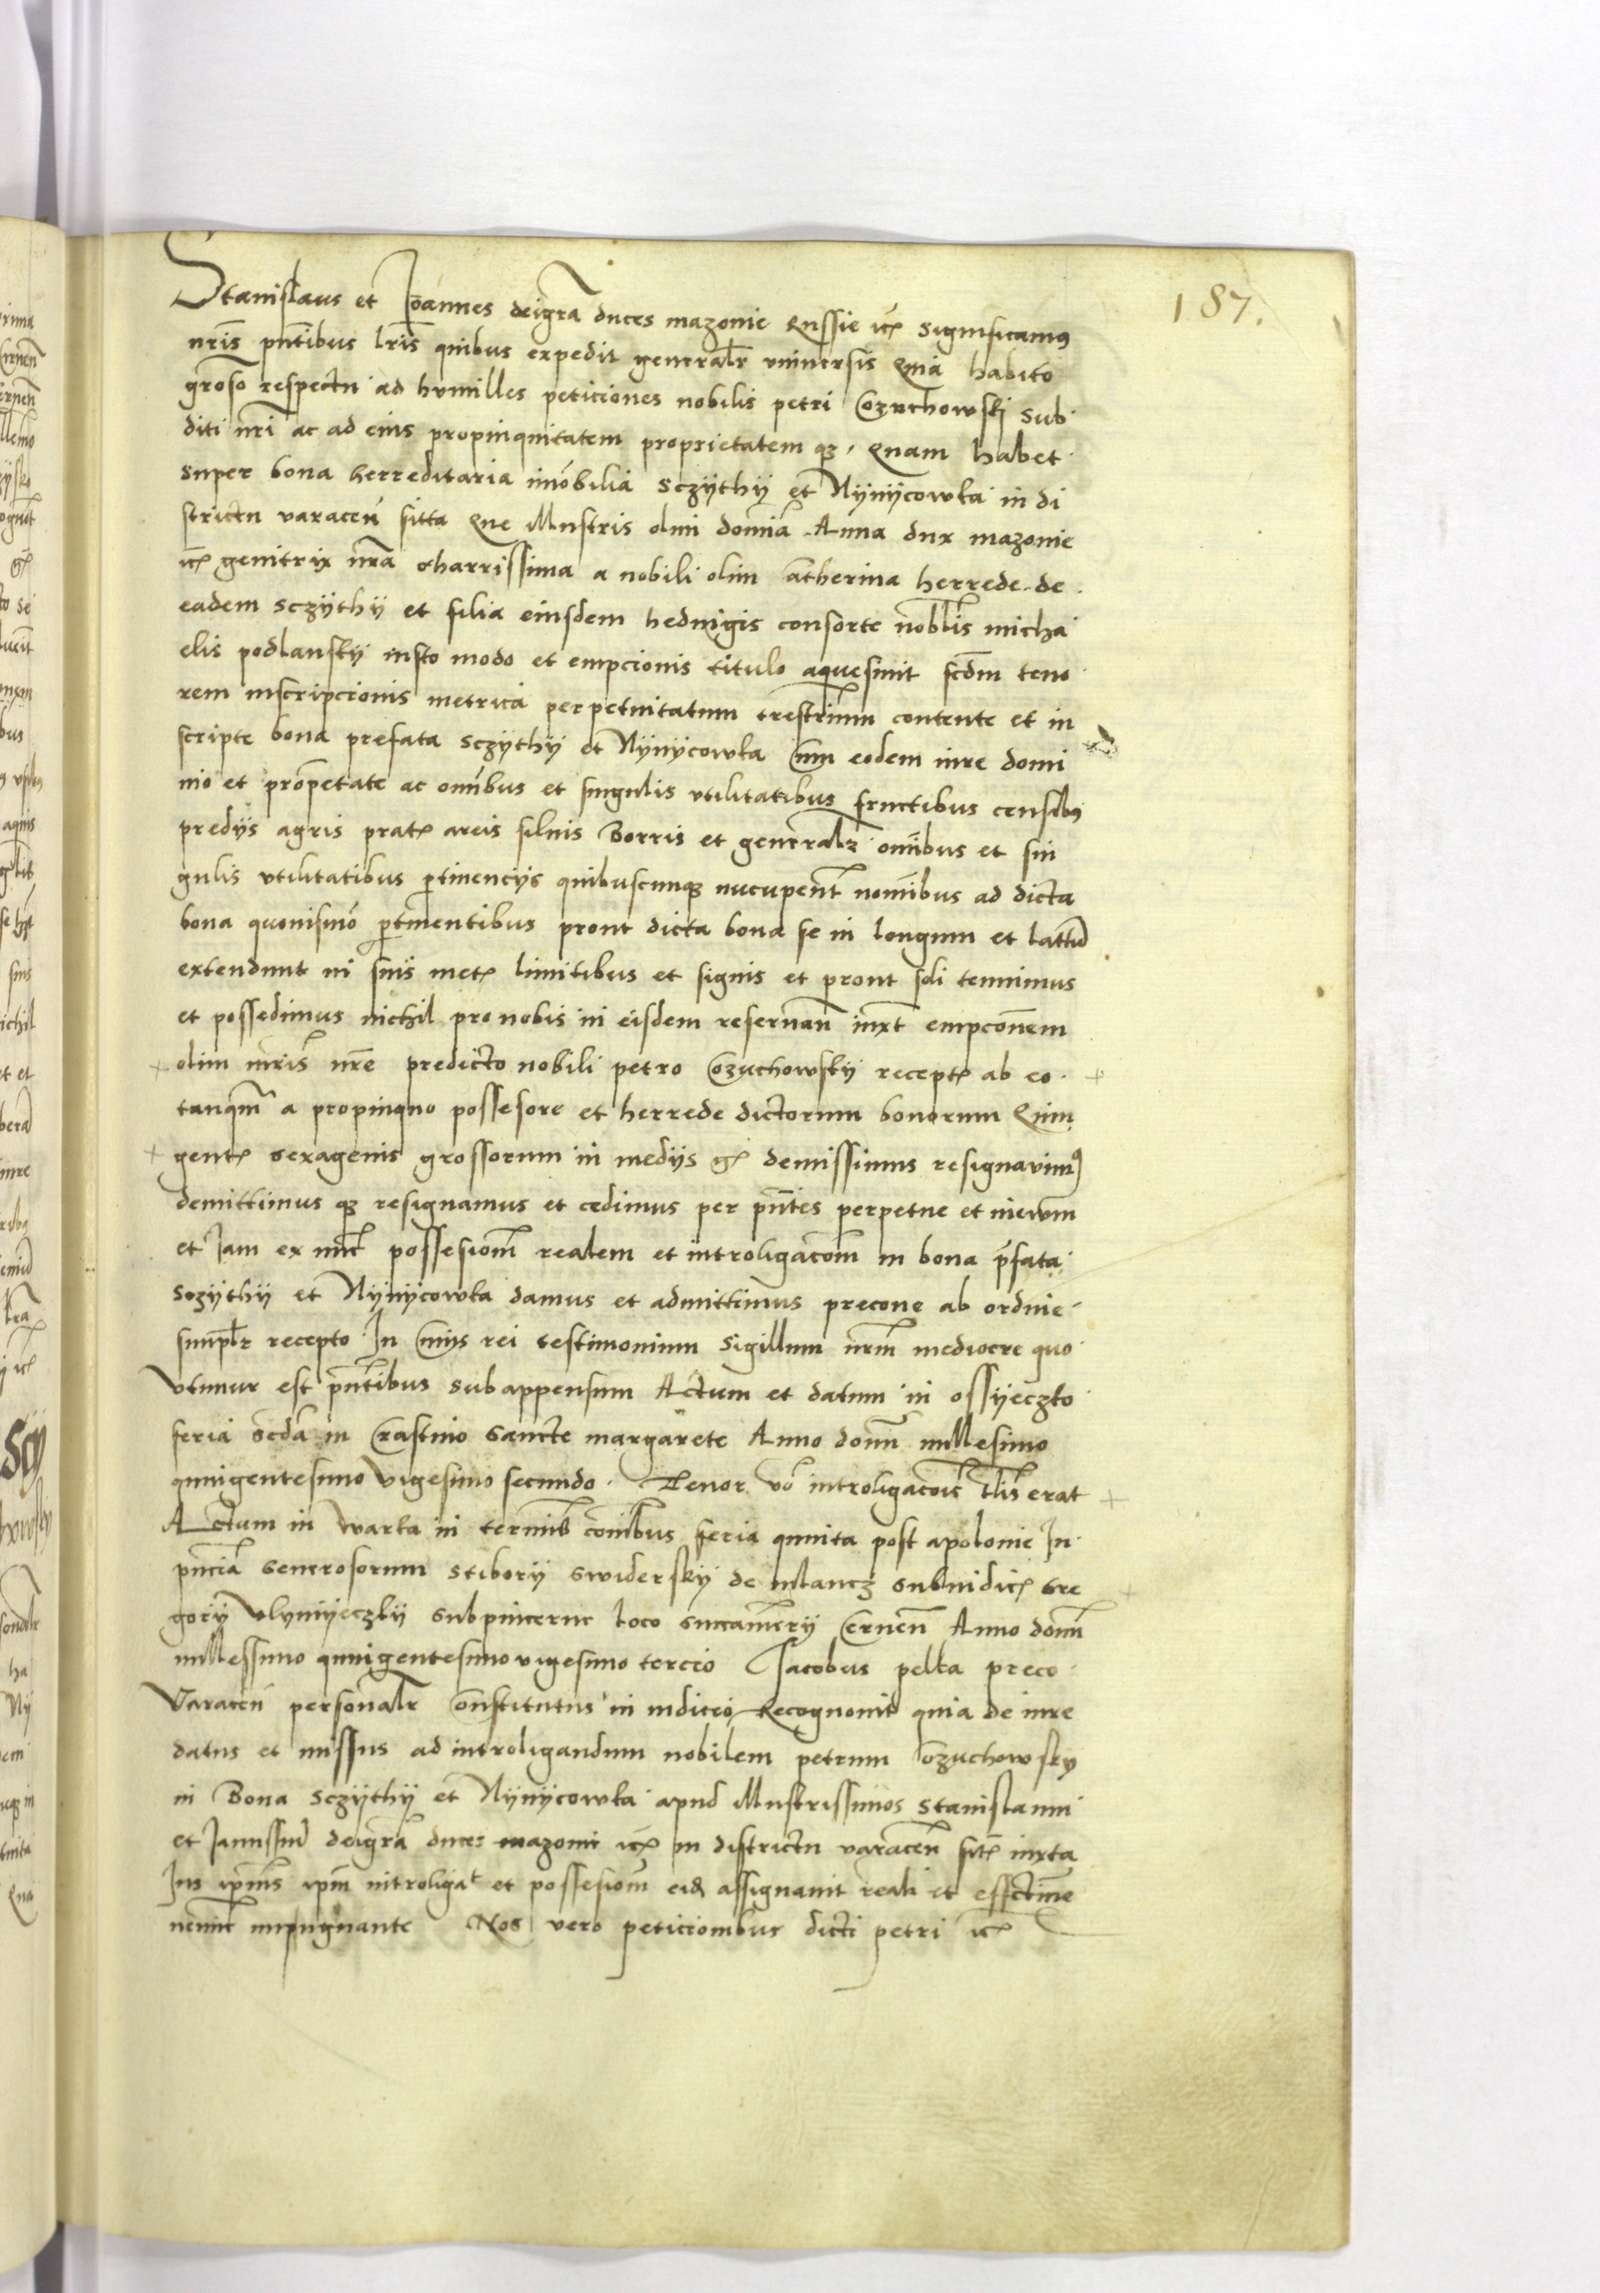 187.
Stanislaus et Joannes dei gr̃a duces mazouie Russie ꝛc̃ Significamus
nr̃is pñtibus lr̃is quibus expedit generalr̃ vniuersis Quia habito
gr̃oso respectu ad humilles peticiones nobilis petri Cozuchowski sub
diti nr̃i ac ad eius propinquitatem proprietatem qꝫ quam habet
super bona herreditaria im̃obilia Sczythy et Nynycowka in di
strictu varacen̄ sitta Que illustris olim domĩa Anna dux mazouie
ꝛc̃ genitrix nr̃a charrissima a nobili olim catherina herrede de
eadem Sczythy et filia eiusdem heduigis consorte nobilis micha
elis podlansky iusto modo et empcionis titulo aquesiuit scd̃m teno
rem inscripcionis metrica perpetuitatum trẽstrium contente et in
scripte bona prefata Sczythy et Nynycowka cum eodem iure domi
nio et prop̃etate ac om̃ibus et singulis vtilitatibus fructibus censibus
predijs agris prat̃ areis siluis Borris et generalr̃ om̃ibus et sin
gulis vtilitatibus ꝑtinencijs quibuscunqꝫ nucupent̃ nom̃ibus ad dicta
bona quouismõ ꝑtinentibus prout dicta bona se in longum et lattum̃
extendunt in suis met̃ limitibus et signis et prout soli tenuimus
et possedimus nichil pro nobis in eisdem reseruan̄ iuxt̃ empcõnem
olim mr̃is nr̃e predicto nobili petro Cozuchowsky recept̃ ab eo
tanqm̃ a propinquo possesore et herrede dictorum bonorum Quin
gent̃ sexagenis grossorum in medijs gr̃ demissimus resignauimus
demittimus qꝫ resignamus et cedimus per pñtes perpetue et in eum
et Jam ex nũc possesiom̃ realem et introligacõm in bona p̃fata
Sczythy et Nynycowka damus et admittimus precone ab ordine
simplr̃ recepto In Cuius rei testimonium Sigillum nr̃m mediocre quo
vtimur est pñtibus subappensum Actum et datum in ossyeczko
feria scd̃a in Crastino sancte margarete Anno domĩ millesimo
quingentesimo vigesimo secundo. Tenor vo̊ introligacõis tl̃is erat
Actum in warka in termĩs cõibus feria quinta post apolonie In
pñcia generosorum stibory swidersky de mlancz subiudic̃ Gre
gory Vlyniyeczky subpincerne loco succamerĩj Cernen̄ Anno domĩ
millessimo quingentesimo vigesimo tercio Jacobus pelka preco
Varacen̄ personalr̃ constitutus in iudicio Recognouit quia de iure
datus et missus ad introligandum nobilem petrum Cozuchowsky
in Bona Sczythy et Nynycowka apud illustrissimos Stanislaum
et Janussium̃ dei gr̃a duces mazouie ꝛc̃ in districtu varacen̄ sit̃ iuxta
Jus ip̃ius ip̃m introliga᷑t et possesiom̃ eid̃ assignauit reali et effectiue
nemine impugnante Nos vero peticionibus dicti petri ꝛc̃